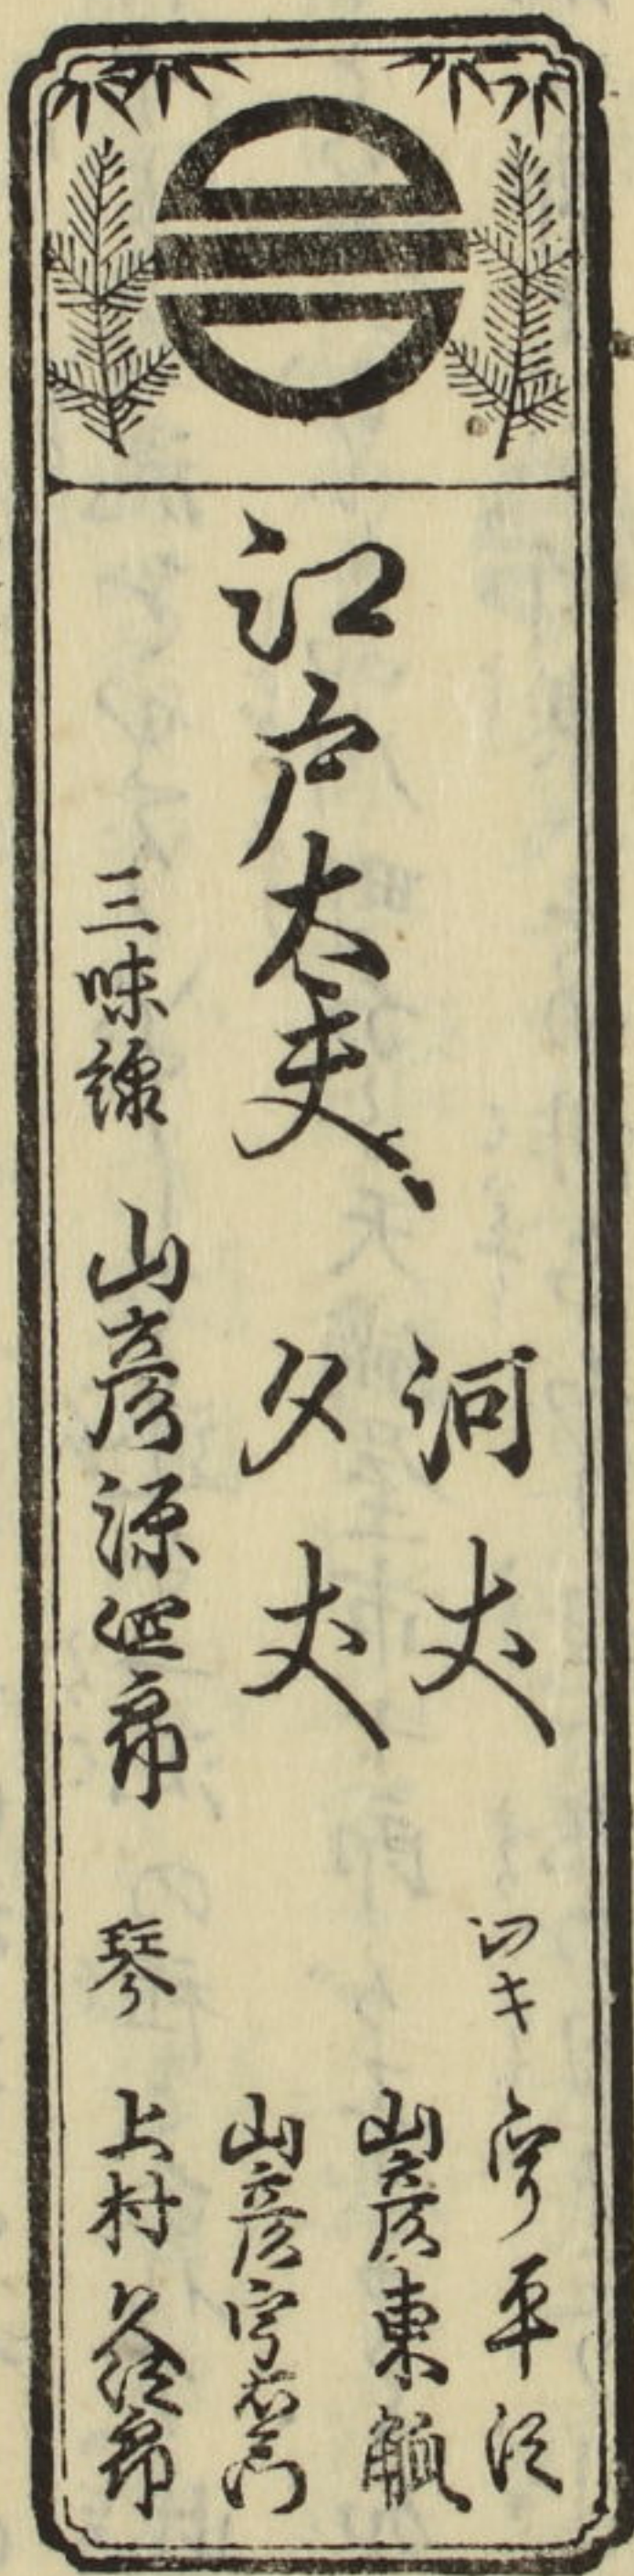 江戸太夫
河丈
夕丈
ワキ 宇平次
山彦東觚
山彦宇右衛門
三味線 山彦源四郎
琴 上村久治郎